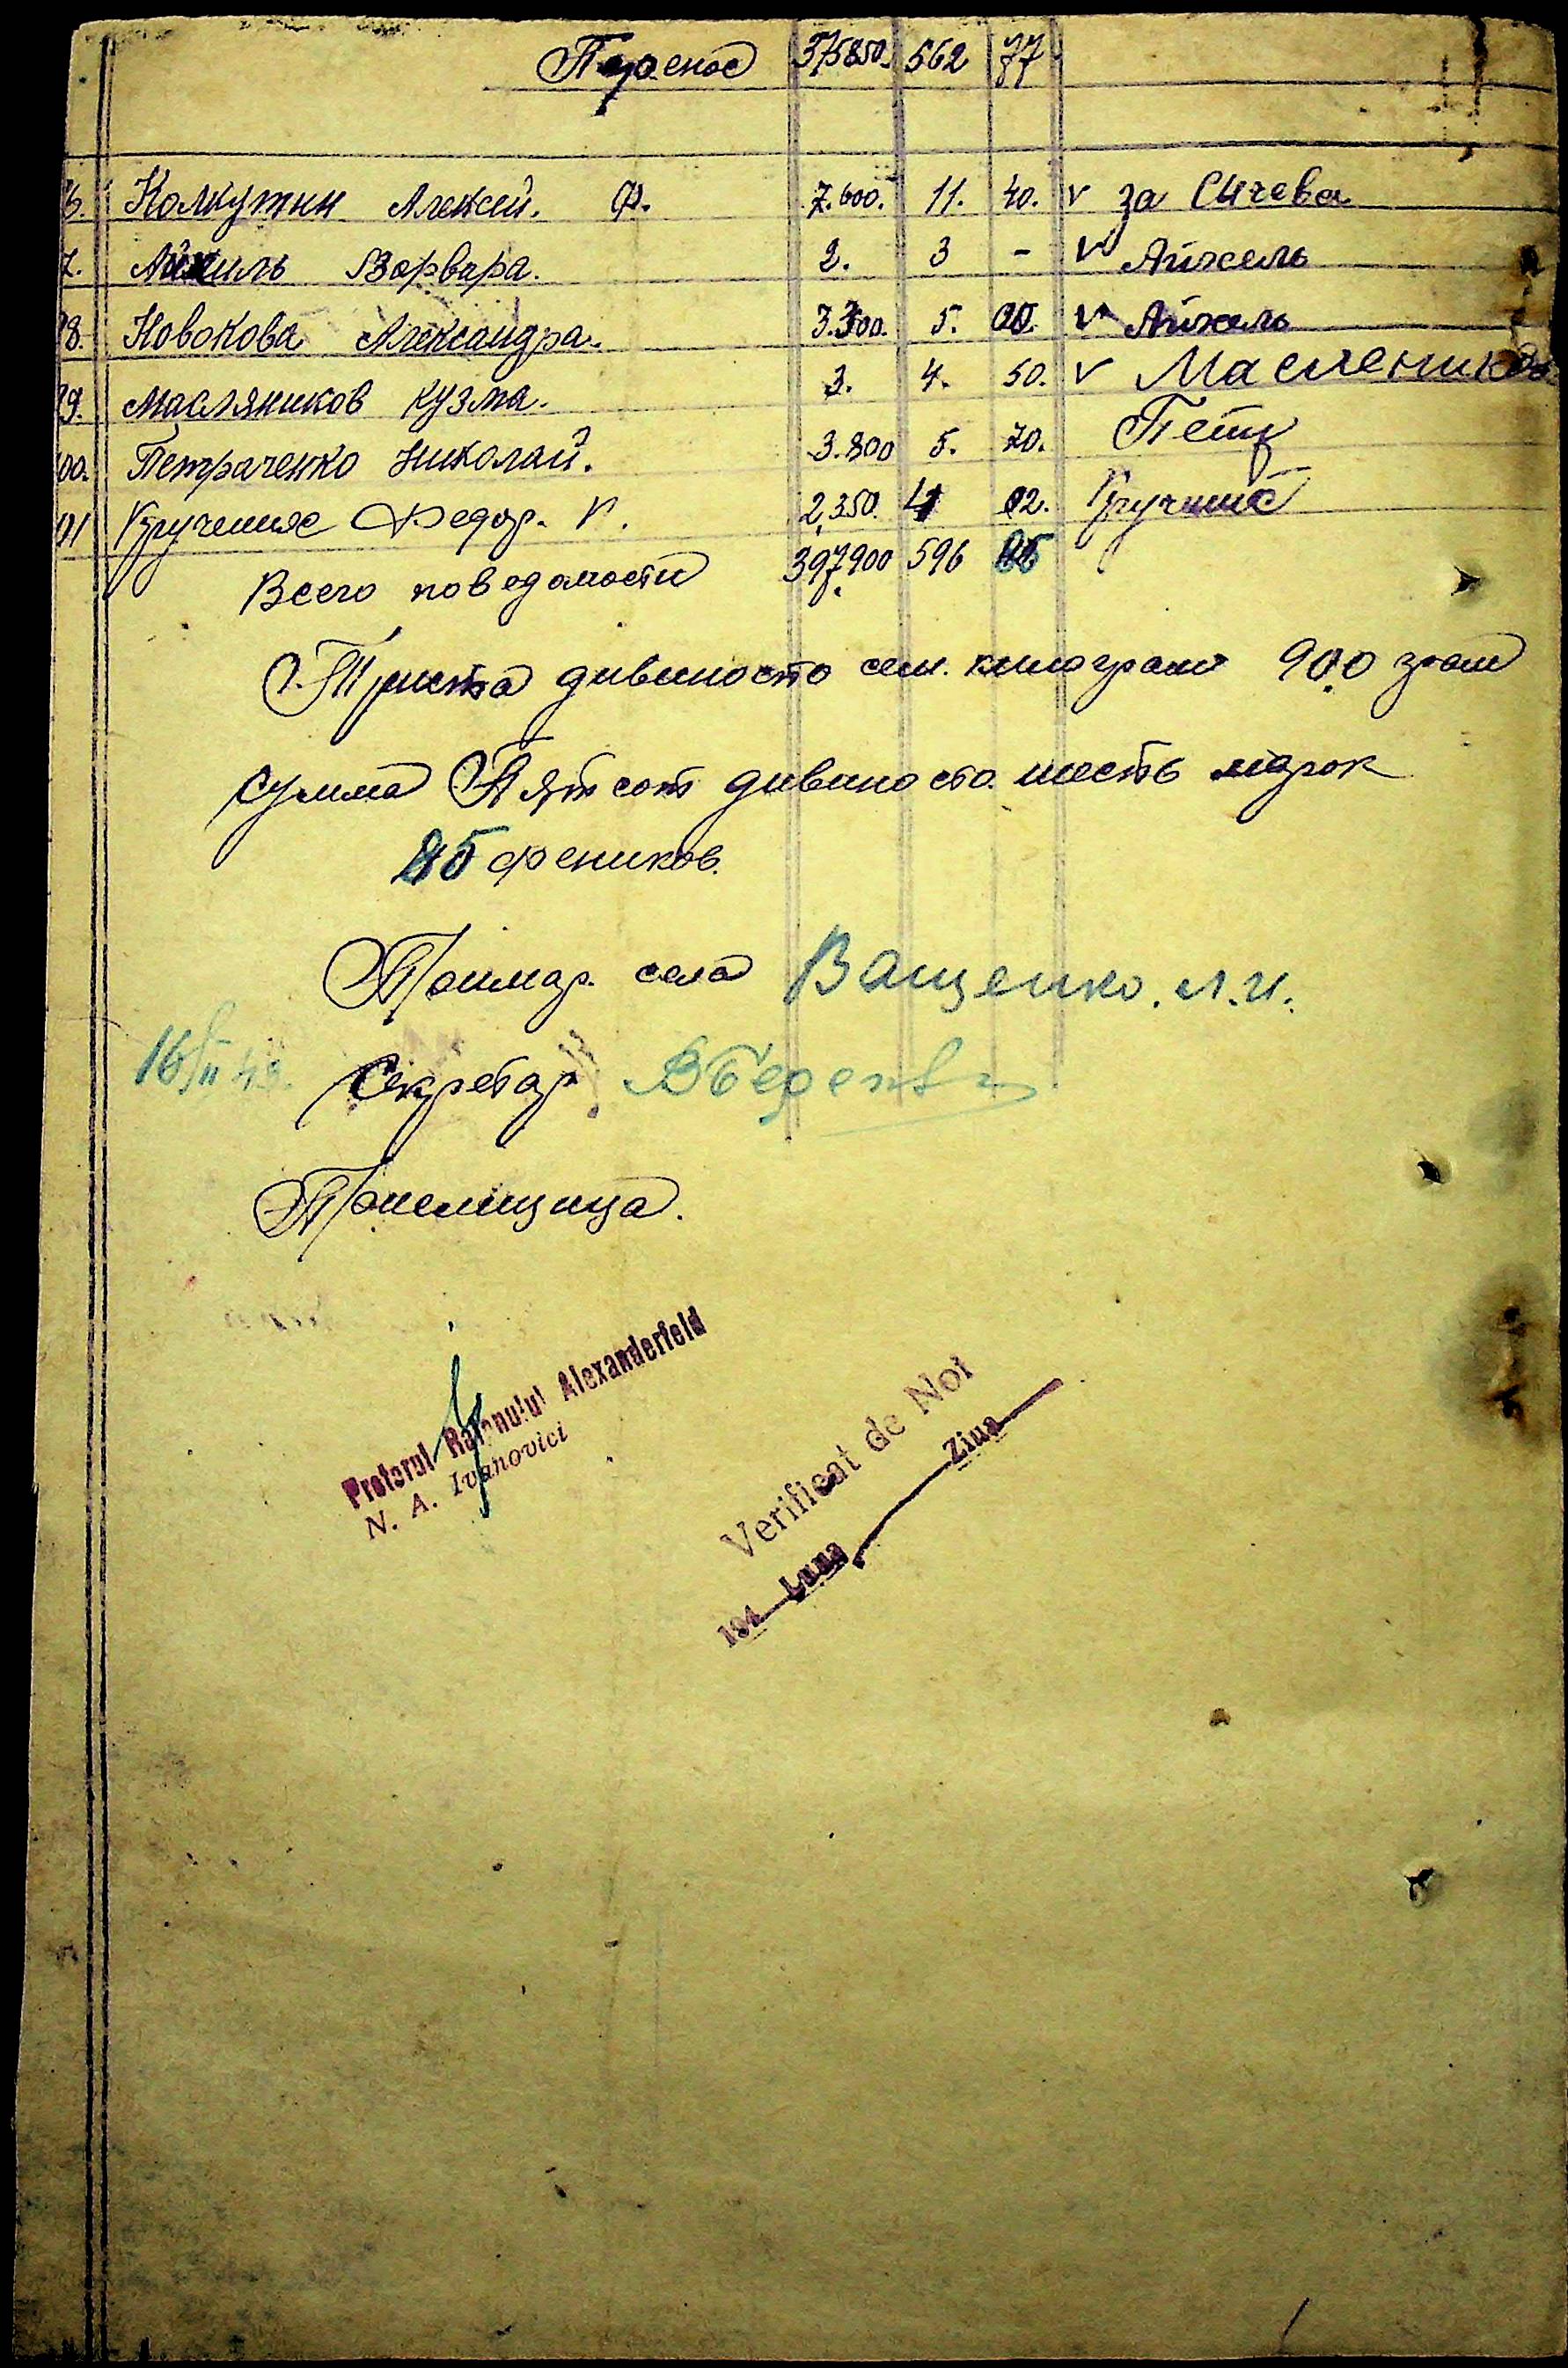 Перенос 375850. 562 77
6. Колкутин Алексей. Ф. 7.600. 11. 40. v за Сычева
7. Айхиль Ворвара. 2. 3 - v Айхель
98. Новокова Александра. 3.300. 5. 00. v Айхель
99. Масляников Кузма. 3. 4. 50. v Маслеников
00. Петраченко Николай. 3.800 5. 70. Петр
01 Кручен Федор. К. 2,350. 4 02. Кручин
Всего поведомости 397.900 596 85
Триста дивяносто сем. килограм 900 грам
сумма Пятсот дивяносто. шесть марок
85 феников.
Примар. села Ващенко. Л.И.
16/II 43. Секретар
Приемщица.
Pretorul Raionului Alexanderfeld
N. A. Ivanovici
Verificat de Noi
194 Luna Ziua